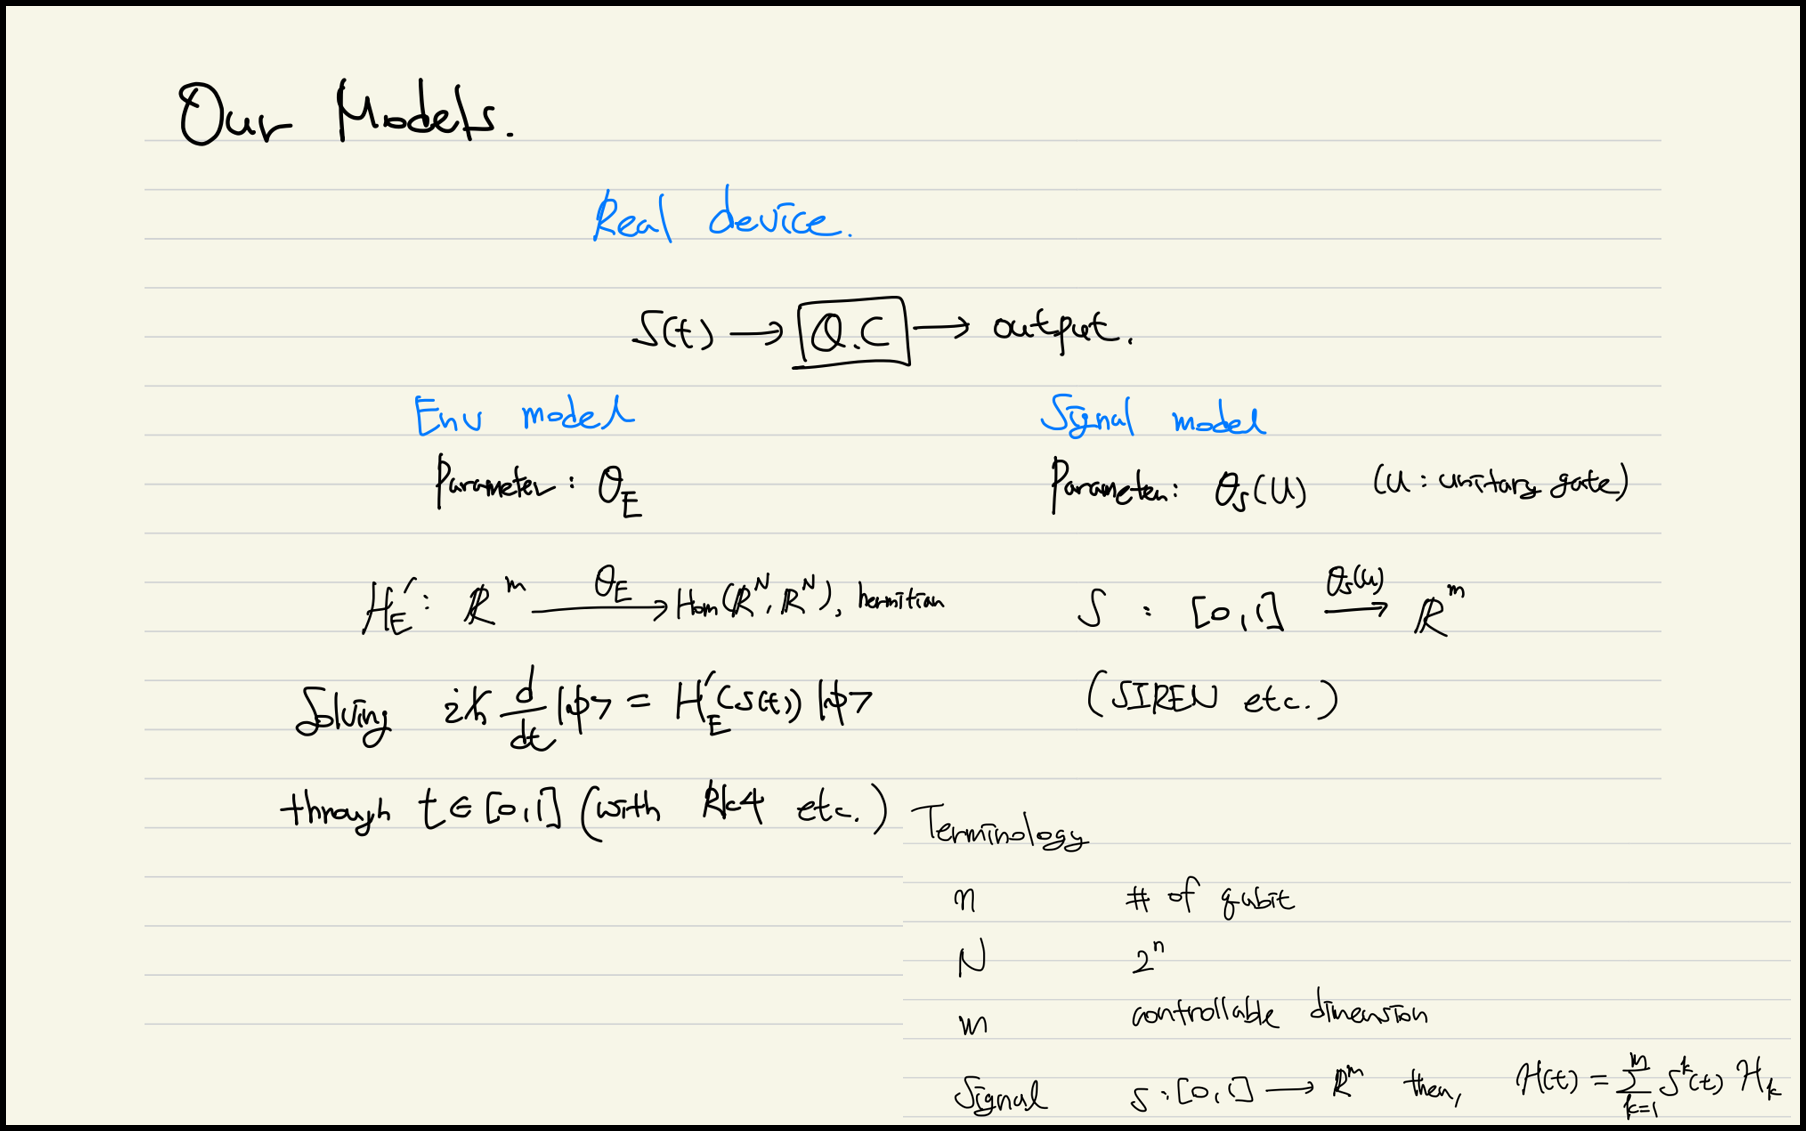 Our Models.
Real device.
S(t) → Q.C → output.
Env model
Parameter : θ_E
H_E' : ℝ^m —θ_E→ Hom(ℝ^N, ℝ^N), hermitian
Solving iℏ d/dt |ψ> = H_E'(s(t)) |ψ>
through t ∈ [0,1] (with RK4 etc.)
Signal model
Parameter : θ_S(U) (U : unitary gate)
S : [0,1] —θ_S(U)→ ℝ^m
(SIREN etc.)
Terminology
n # of qubit
N 2^n
m controllable dimension
Signal s : [0,1] → ℝ^m then, H(t) = Σ_{k=1}^m S^k(t) H_k